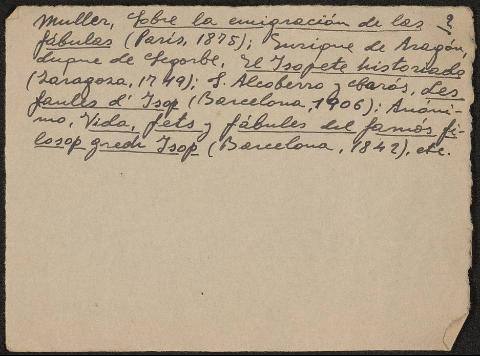 Muller, Sobre la emigración de las 2
fábulas (París, 1875); Enrique de Aragón,
Duque de Segorbe, El Isopete historiado
(Zaragoza, 1749); S. Alcoberro y Carós, Les
faules d' Isop (Barcelona, 1906); Anóni-
mo, Vida, fets y fábules del famós fi-
losop grech Isop (Barcelona, 1842), etc.